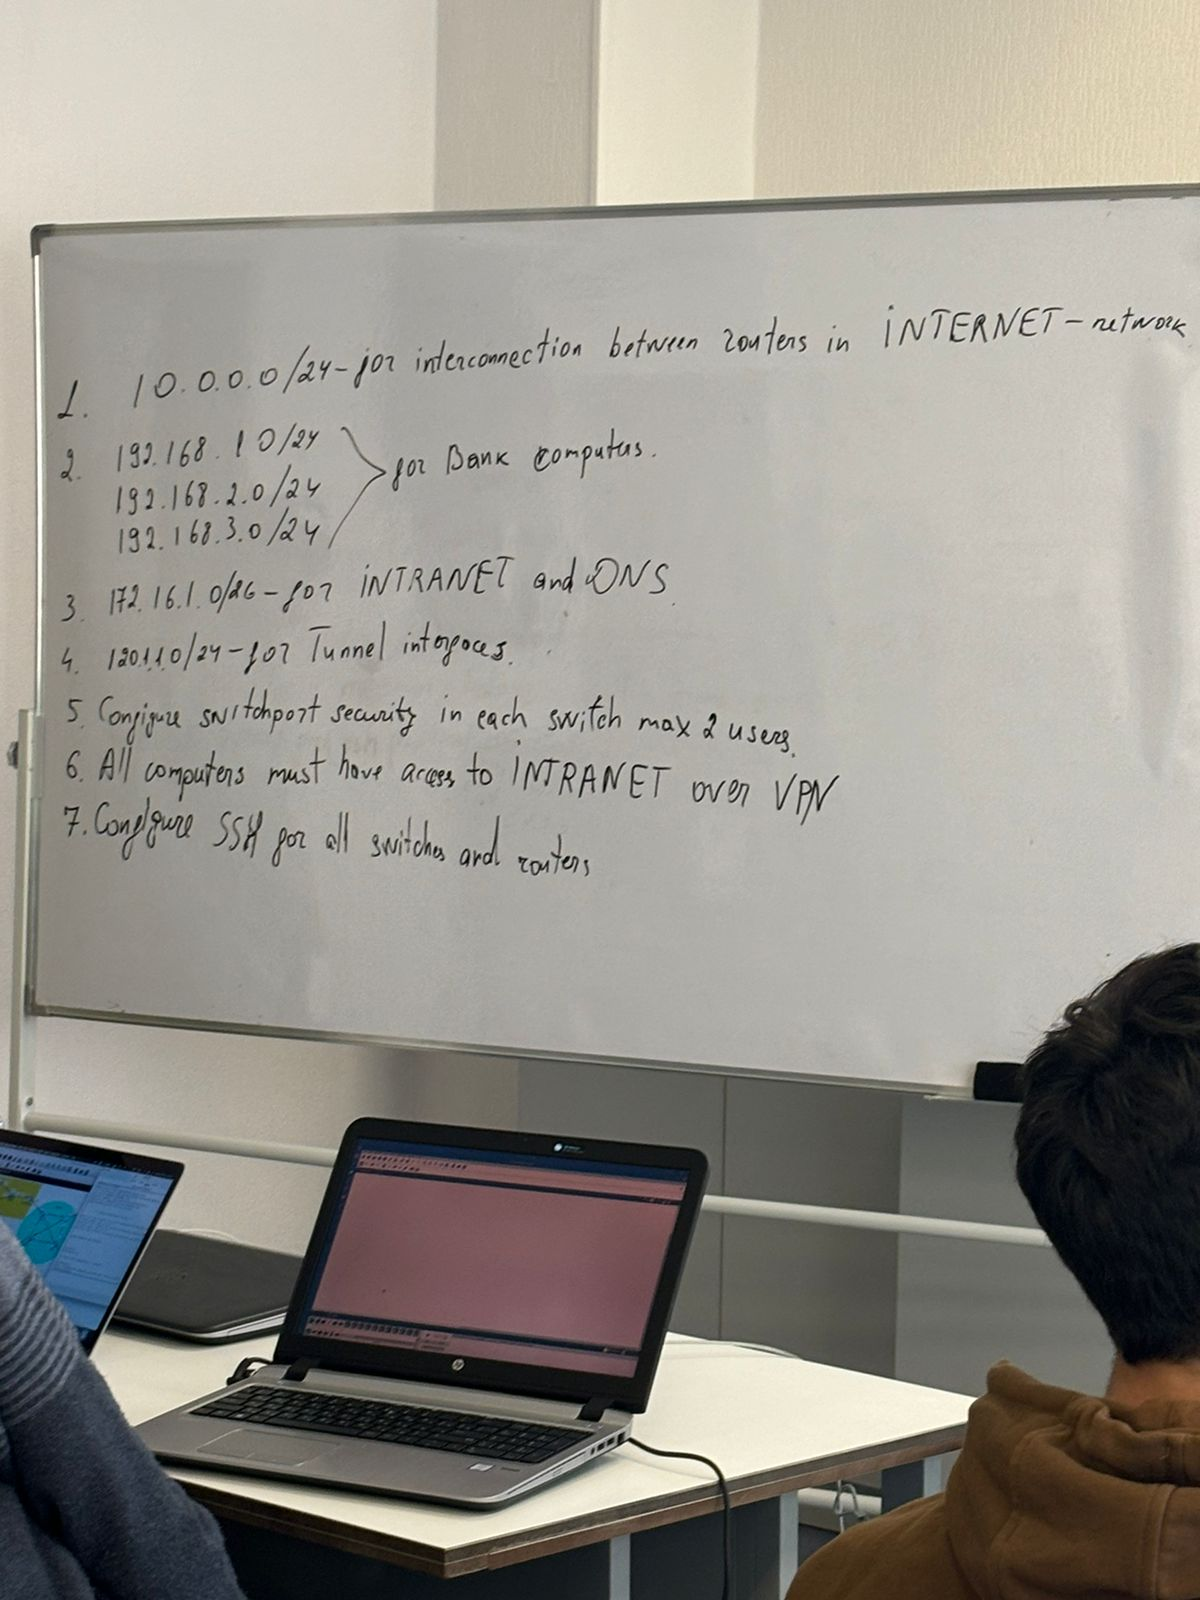 1. 10.0.0.0/24 - for interconnection between routers in INTERNET - network
2. 192.168.1.0/24
192.168.2.0/24 for Bank computers.
192.168.3.0/24
3. 172.16.1.0/26 - for INTRANET and DNS.
4. 120.1.1.0/24 - for Tunnel interfaces.
5. Configure switchport security in each switch max 2 users.
6. All computers must have access to INTRANET over VPN
7. Configure SSH for all switches and routers
hp